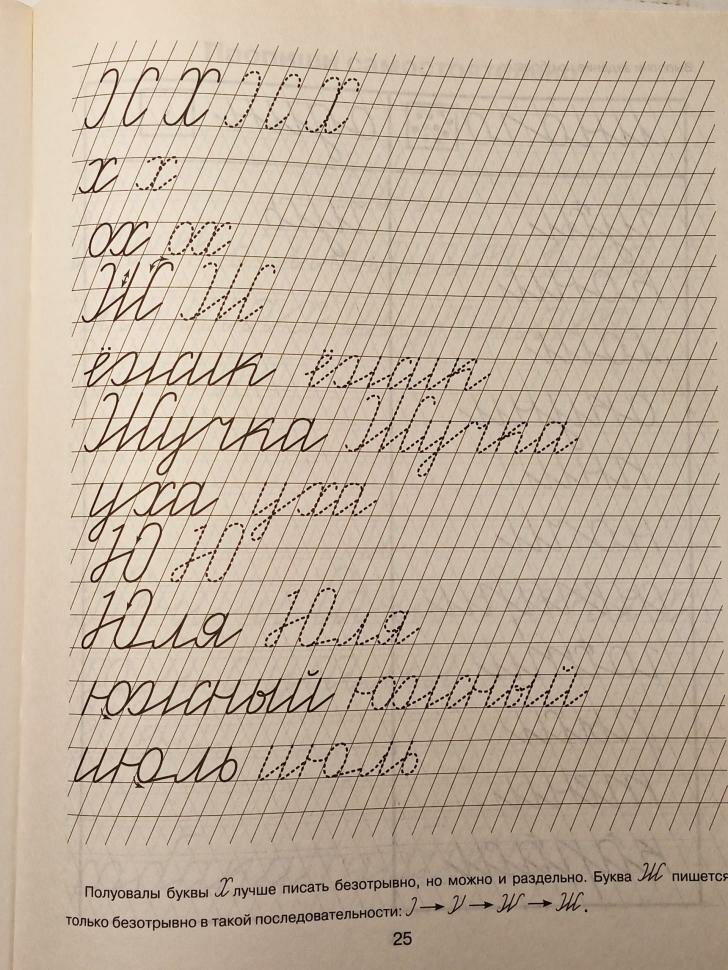 Х Х Х Х
х х
ох ох
Ж Ж
ёжик ёжик
Жучка Жучка
уха уха
Ю Ю
Юля Юля
южный южный
июль июль
Полуовалы буквы Х лучше писать безотрывно, но можно и раздельно. Буква Ж пишется
только безотрывно в такой последовательности:
25